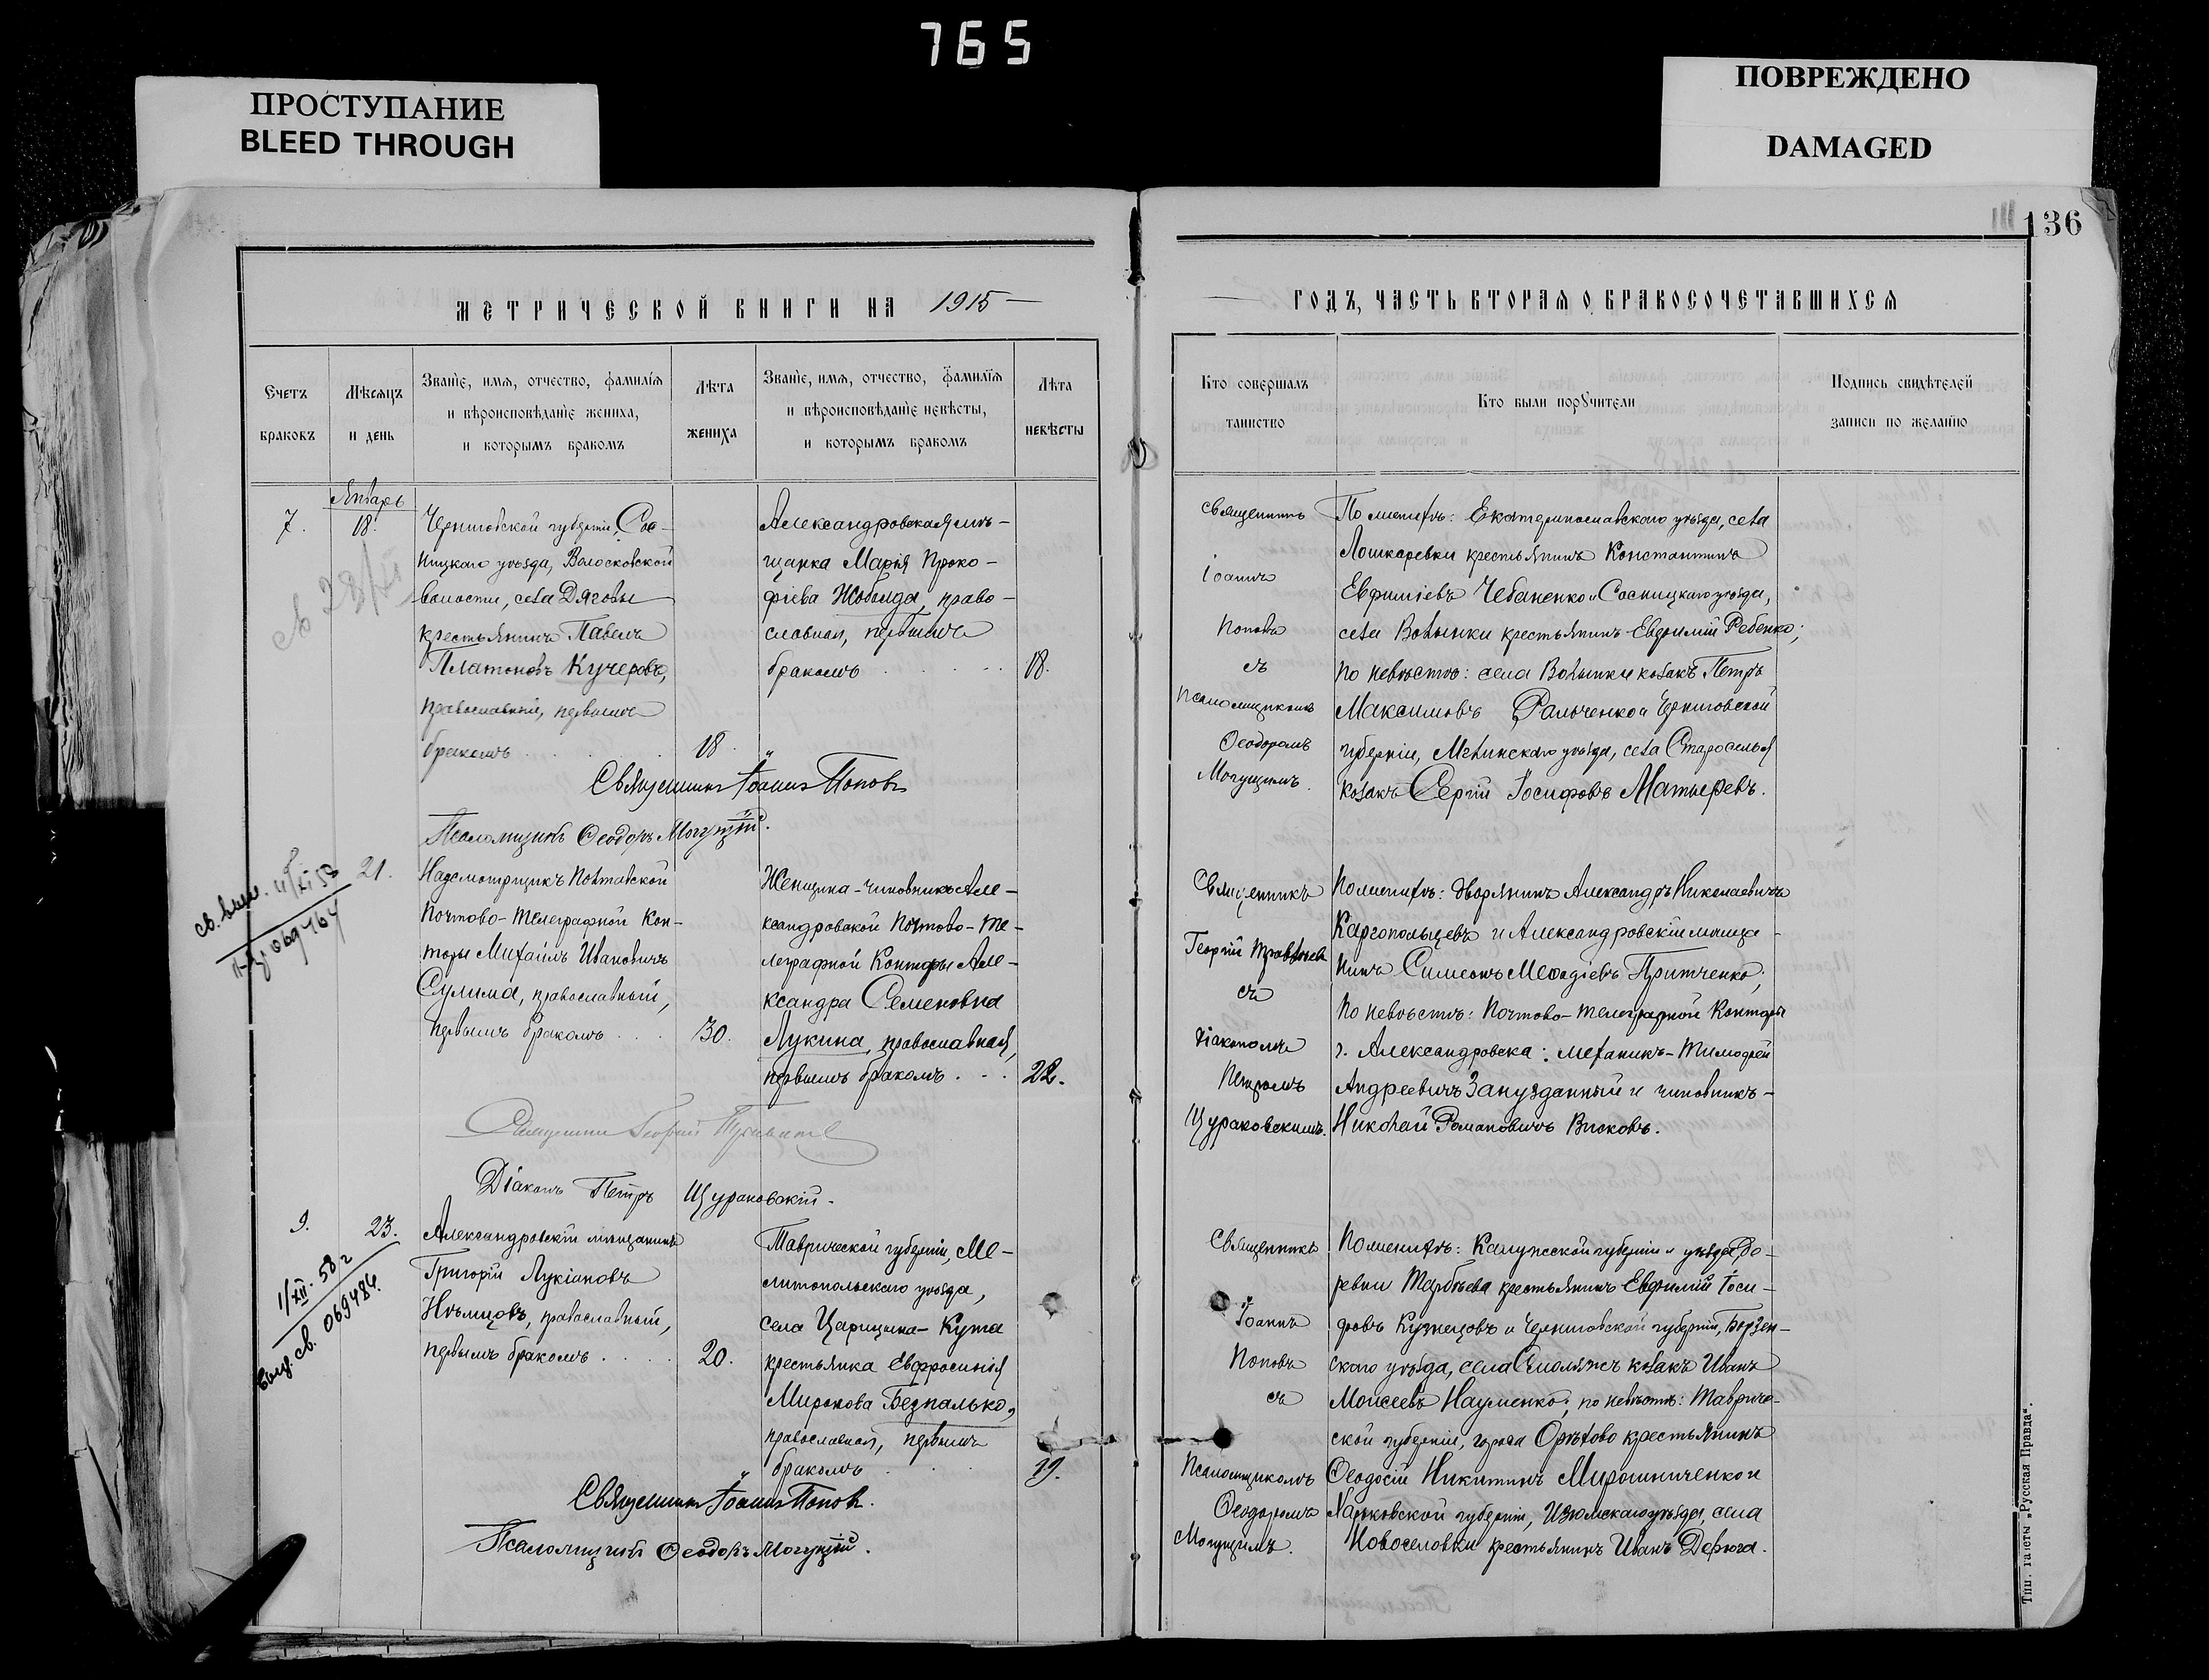 765
ПРОСТУПАНИЕ
BLEED THROUGH
ПОВРЕЖДЕНО
DAMAGED
136
МЕТРИЧЕСКОЙ КНИГИ НА 1915
Счетъ браковъ
Мѣсяцъ и день
Званіе, имя, отчество, фамилія
и вѣроисповѣданіе жениха,
и которымъ бракомъ
Лѣта жениха
Званіе, имя, отчество, фамилія
и вѣроисповѣданіе невѣсты,
и которымъ бракомъ
Лѣта невѣсты
7.
Январь
18.
Черниговской губерніи, Сос-
ницкаго уѣзда, Волосковской
волости, села Дяговы
крестьянинъ Павелъ
Платоновъ Кучеровъ,
православный, первымъ
бракомъ
18.
Александровская мѣ-
щанка Марія Проко-
фіева Жобвида, право-
славная, первымъ
бракомъ
18.
Священникъ Іоаннъ Поповъ
Псаломщикъ Ѳеодоръ Могущій.
св. выд.
069464
21.
Надсмотрщикъ Полтавской
Почтово-Телеграфной Кон-
торы Михаилъ Ивановичъ
Сулима, православный,
первымъ бракомъ
30.
Женщина-чиновникъ Але-
ксандровской Почтово-Те-
леграфной Конторы Але-
ксандра Семеновна
Лукина, православная,
первымъ бракомъ
22.
Священникъ Георгій
Діаконъ Петръ Цураковскій.
9.
23.
1/XII. 58 г
Выд. св. 069484.
Александровскій мѣщанинъ
Григорій Лукіановъ
Нѣмцовъ, православный,
первымъ бракомъ
20.
Таврической губерніи, Ме-
литопольскаго уѣзда,
села Царицына-Кута
крестьянка Евфросинія
Миронова Безпалько,
православная, первымъ
бракомъ
19.
Священникъ Іоаннъ Поповъ.
Псаломщикъ Ѳеодоръ Могущій.
ГОДЪ, ЧАСТЬ ВТОРАЯ О БРАКОСОЧЕТАВШИХСЯ
Кто совершалъ таинство
Кто были поручители
Подпись свидѣтелей
записи по желанію
Священникъ
Іоаннъ
Поповъ
съ
Псаломщикомъ
Ѳеодоромъ
Могущимъ.
По женихѣ: Екатеринославскаго уѣзда, села
Лошкаревки крестьянинъ Константинъ
Евфиміевъ Чебаненко и Сосницкаго уѣзда,
села Волынки крестьянинъ Евфимій Ребенко;
по невѣстѣ: села Волынки козакъ Петръ
Максимовъ Ральченко и Черниговской
губерніи, Менинскаго уѣзда, села Староселья
козакъ Сергій Іосифовъ Матыревъ.
Священникъ
Георгій
съ
діакономъ
Петромъ
Цураковскимъ.
По женихѣ: дворянинъ Александръ Николаевичъ
Каргопольцевъ и Александровскій мѣща-
нинъ Симеонъ Меѳодіевъ Притченко;
по невѣстѣ: Почтово-Телеграфной Конторы
г. Александровска: механикъ-Тимофей
Андреевичъ Занузданный и чиновникъ-
Николай Романовичъ Висковъ.
Священникъ
Іоаннъ
Поповъ
съ
Псаломщикомъ
Ѳеодоромъ
Могущимъ.
По женихѣ: Калужской губерніи и уѣзда, де-
ревни крестьянинъ Евфимій Іоси-
фовъ Кузнецовъ и Черниговской губерніи, Борзен-
скаго уѣзда, села Смоляжъ козакъ Иванъ
Моисеевъ Науменко; по невѣстѣ: Тавриче-
ской губерніи, города Орѣхово крестьянинъ
Ѳеодосій Никитинъ Мирошниченко и
Харьковской губерніи, Изюмскаго уѣзда, села
Новоселовки крестьянинъ Иванъ Дерюга.
Тип. газеты „Русская Правда“.